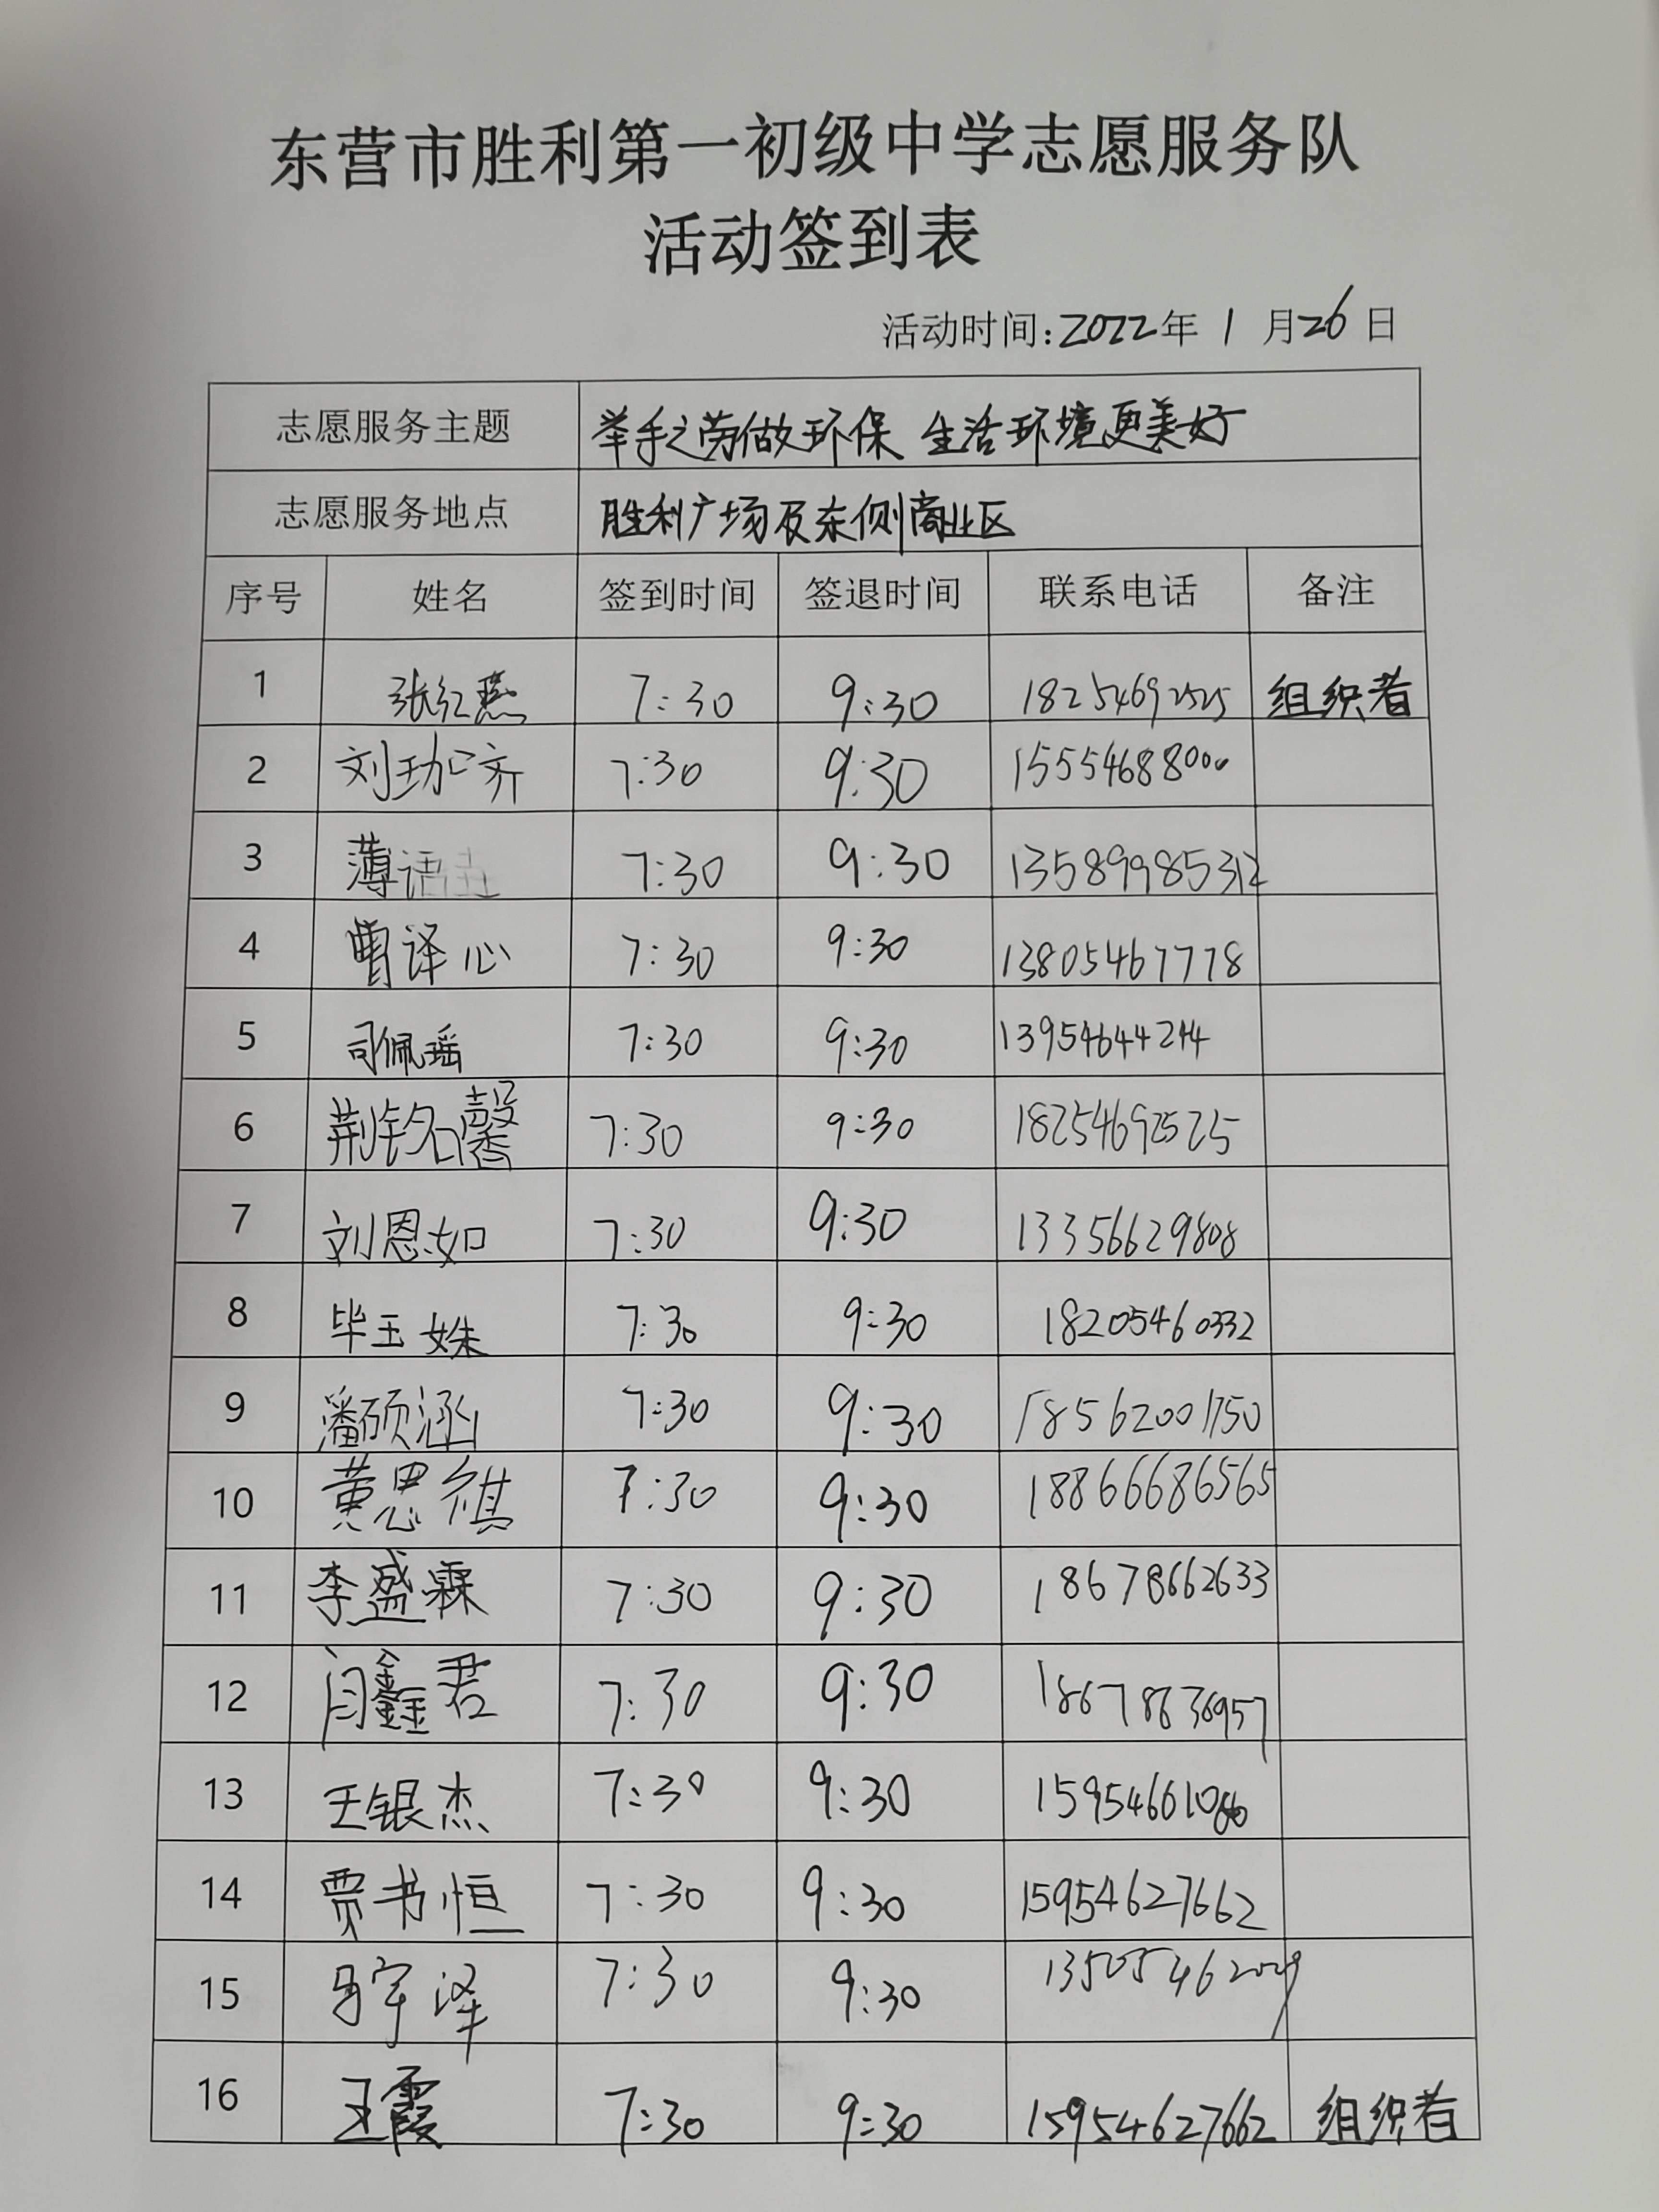 东营市胜利第一初级中学志愿服务队
活动签到表
活动时间:2022年 1 月26日
志愿服务主题 举手之劳做环保 生活环境更美好
志愿服务地点 胜利广场及东侧商业区
序号 姓名 签到时间 签退时间 联系电话 备注
1 张红燕 7:30 9:30 18254692525 组织者
2 刘 7:30 9:30 15554688000
3 薄语 7:30 9:30 13589985312
4 曹译心 7:30 9:30 13805467778
5 司佩瑶 7:30 9:30 13954644244
6 荆铭馨 7:30 9:30 18254692525
7 刘恩如 7:30 9:30 13356629808
8 毕玉姝 7:30 9:30 18205460332
9 潘硕涵 7:30 9:30 18562001750
10 黄思祺 7:30 9:30 18866686565
11 李盛霖 7:30 9:30 18678662633
12 闫鑫君 7:30 9:30 18678636957
13 王银杰 7:30 9:30
14 贾书恒 7:30 9:30 15954627662
15 马宇泽 7:30 9:30 13505462029
16 王霞 7:30 9:30 15954627662 组织者